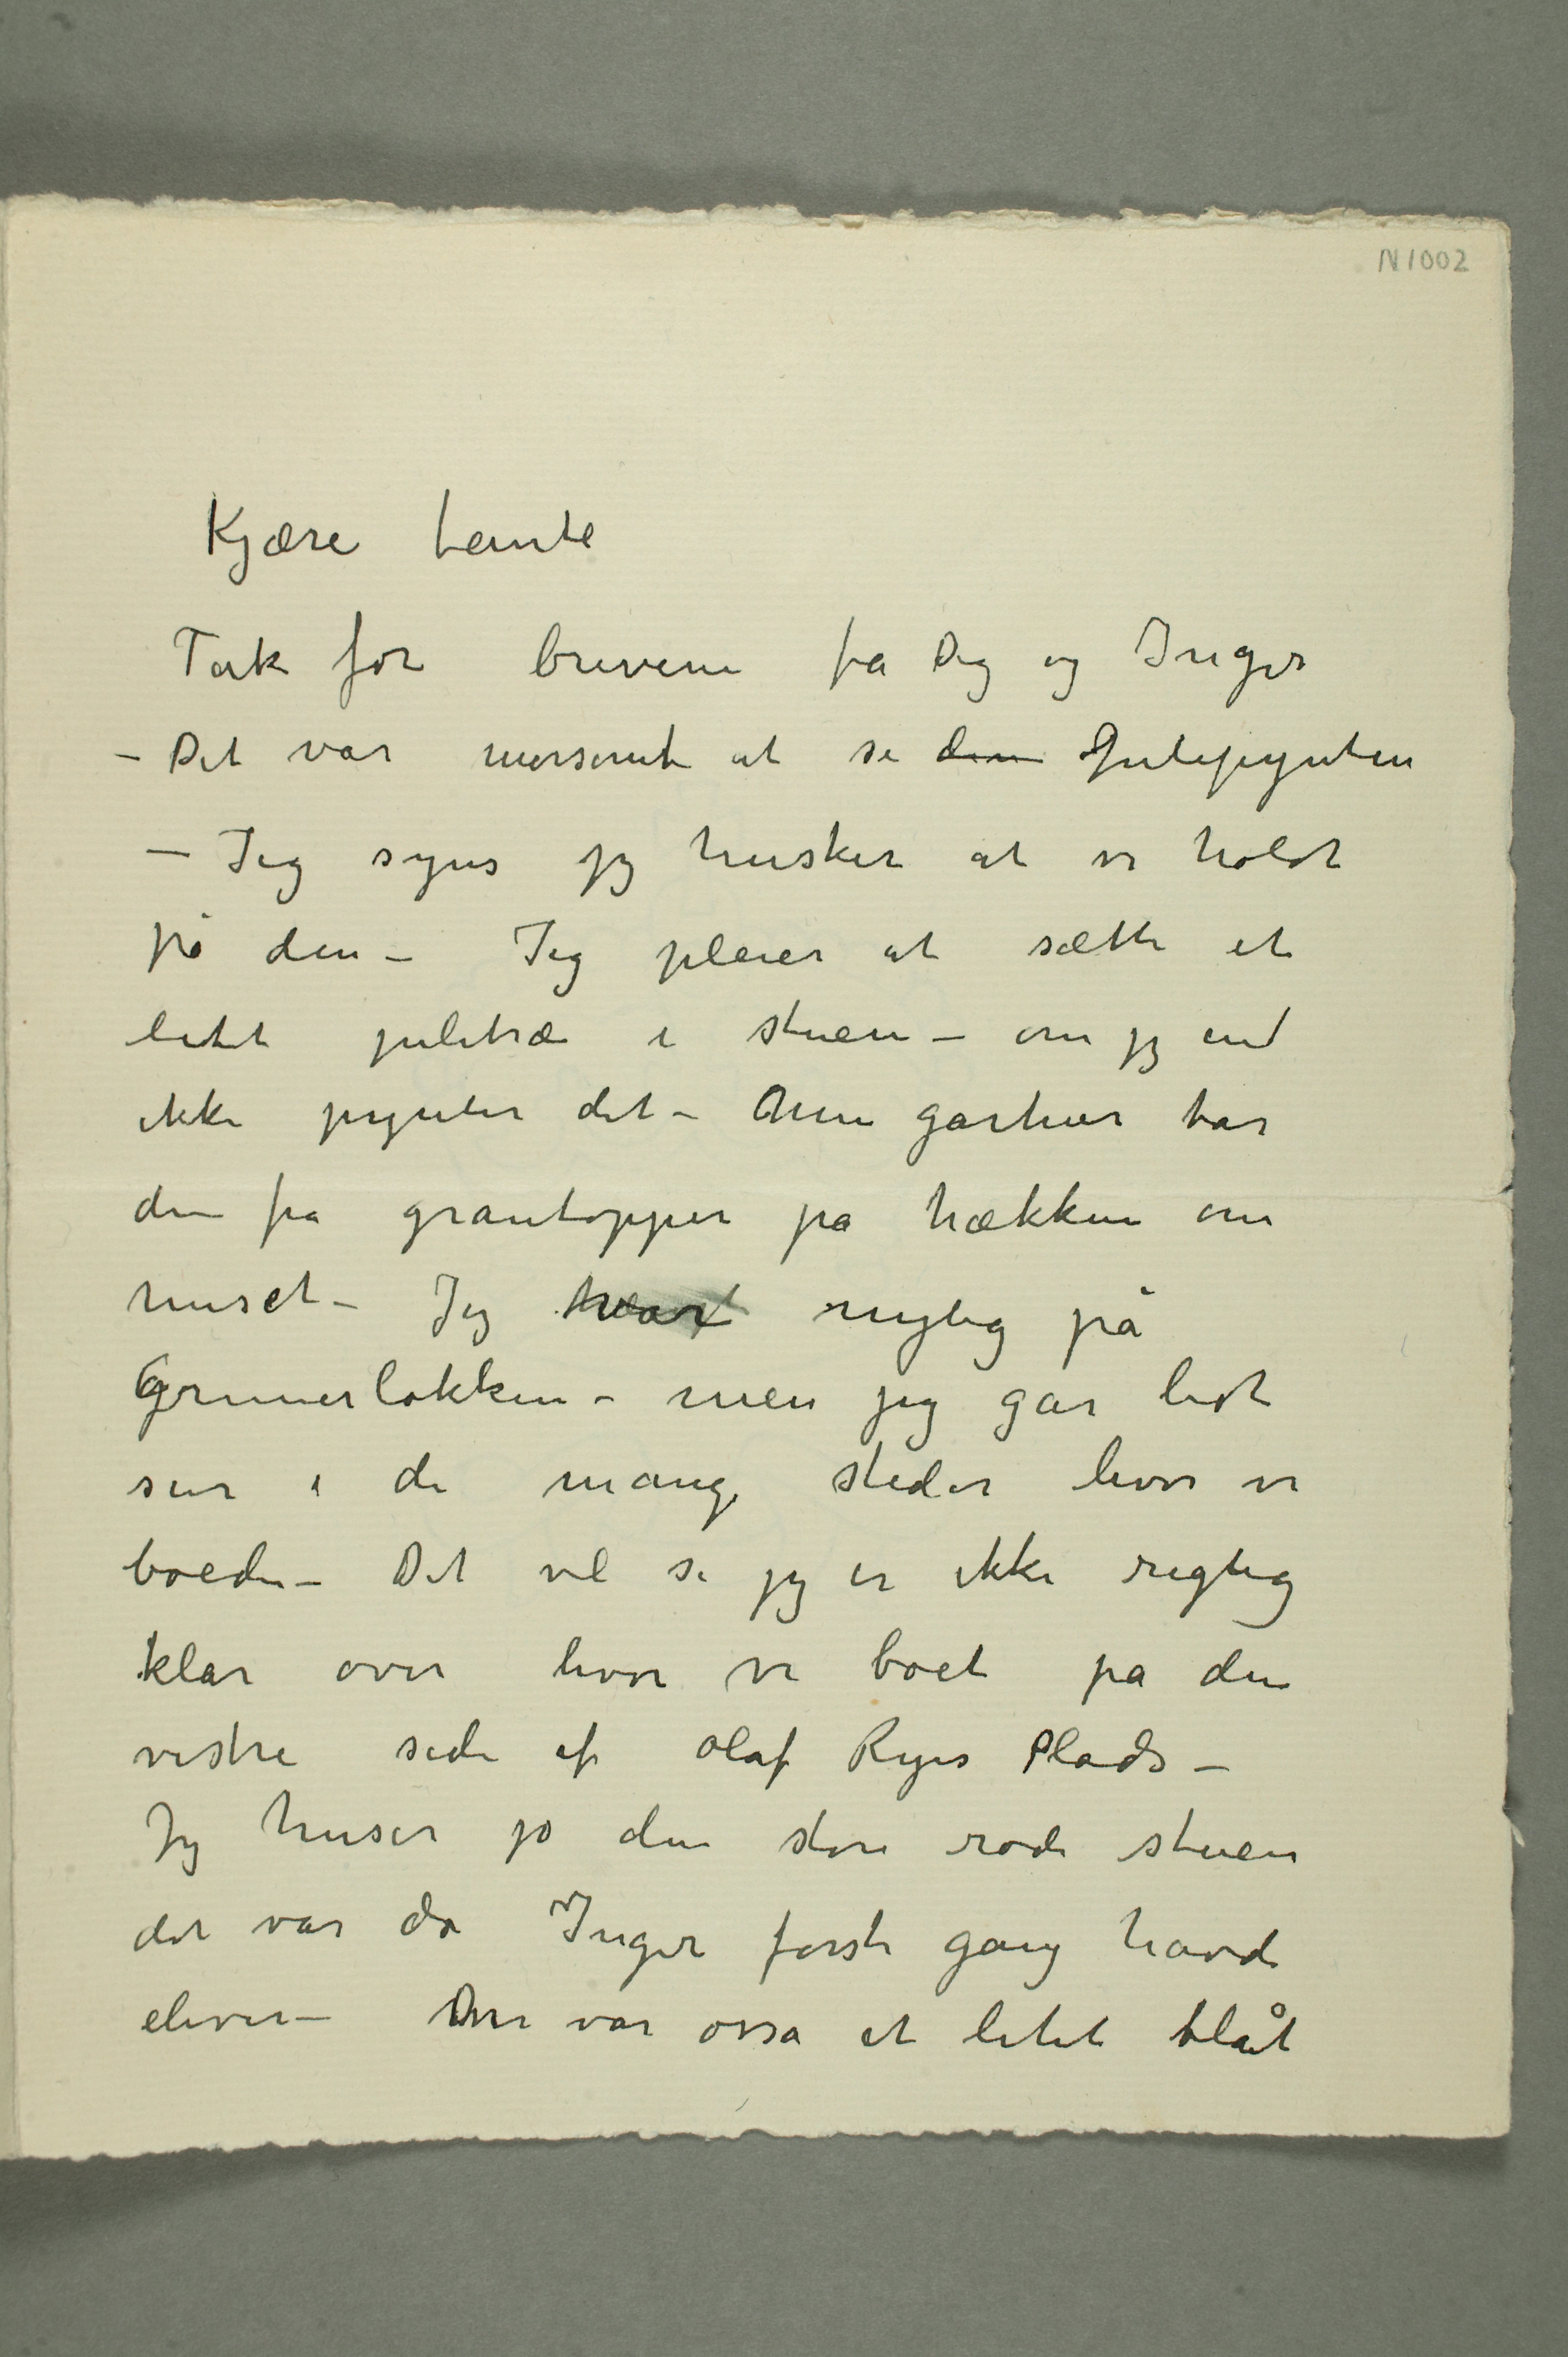 N1002
Kjære tante
Tak for brevene fra Dig og Inger
– Det var morsomt at se den Julepynten
– Jeg synes jeg husker at vi holdt
på den – Jeg pleier at sætte et
litet juletræ i stuen – om jeg end
ikke pynter det – Min gartner tar
den fra grantopper på hækken om
huset – Jeg var nylig på
Grünerløkken – men jeg går lidt
sur i de mange steder hvor vi
boede – Det vil si jeg er ikke rigtig
klar over hvor vi boet på den
vestre side af Olaf Ryes Plads –
Jeg huser jo den store røde stuen
det var da Inger første gang havde
elever – Der var ossa et litet blåt